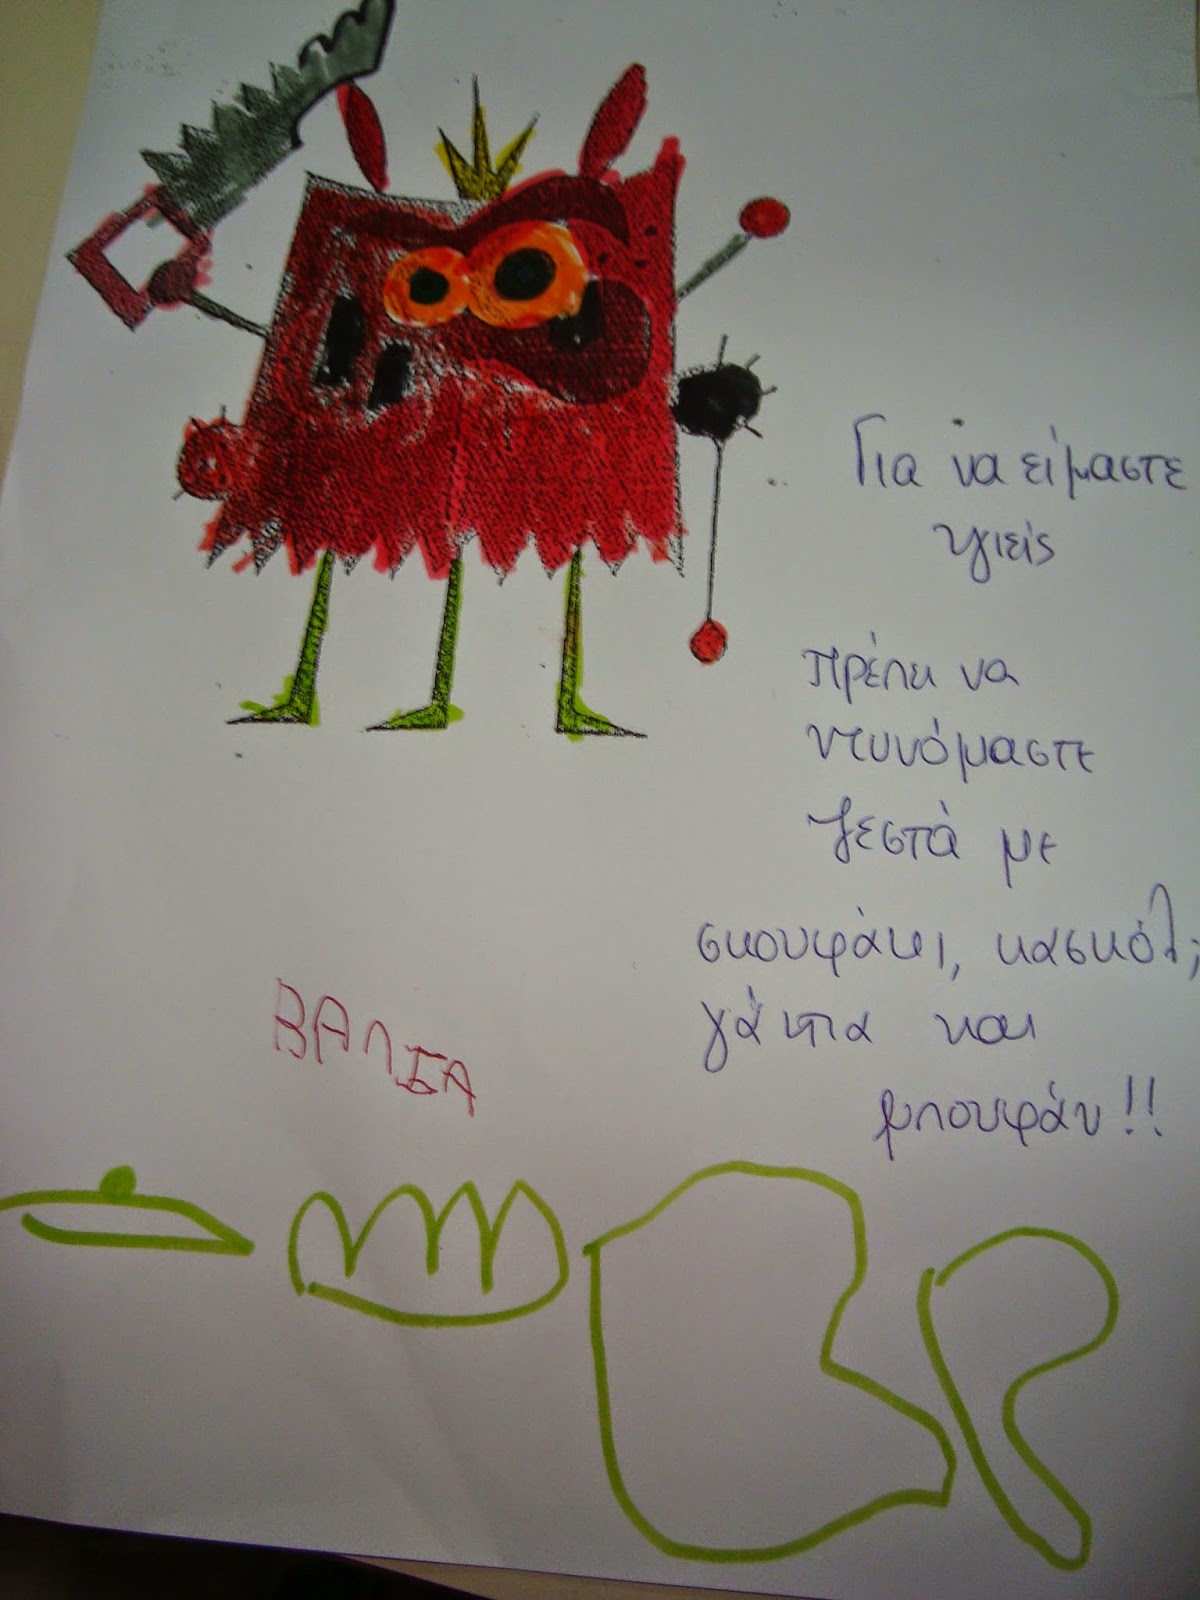 Για να είμαστε
υγιείς
πρέπει να
ντυνόμαστε
ζεστά με
σκουφάκι, κασκόλ,
γάντια και
μπουφάν!!
ΒΑΛΙΑ